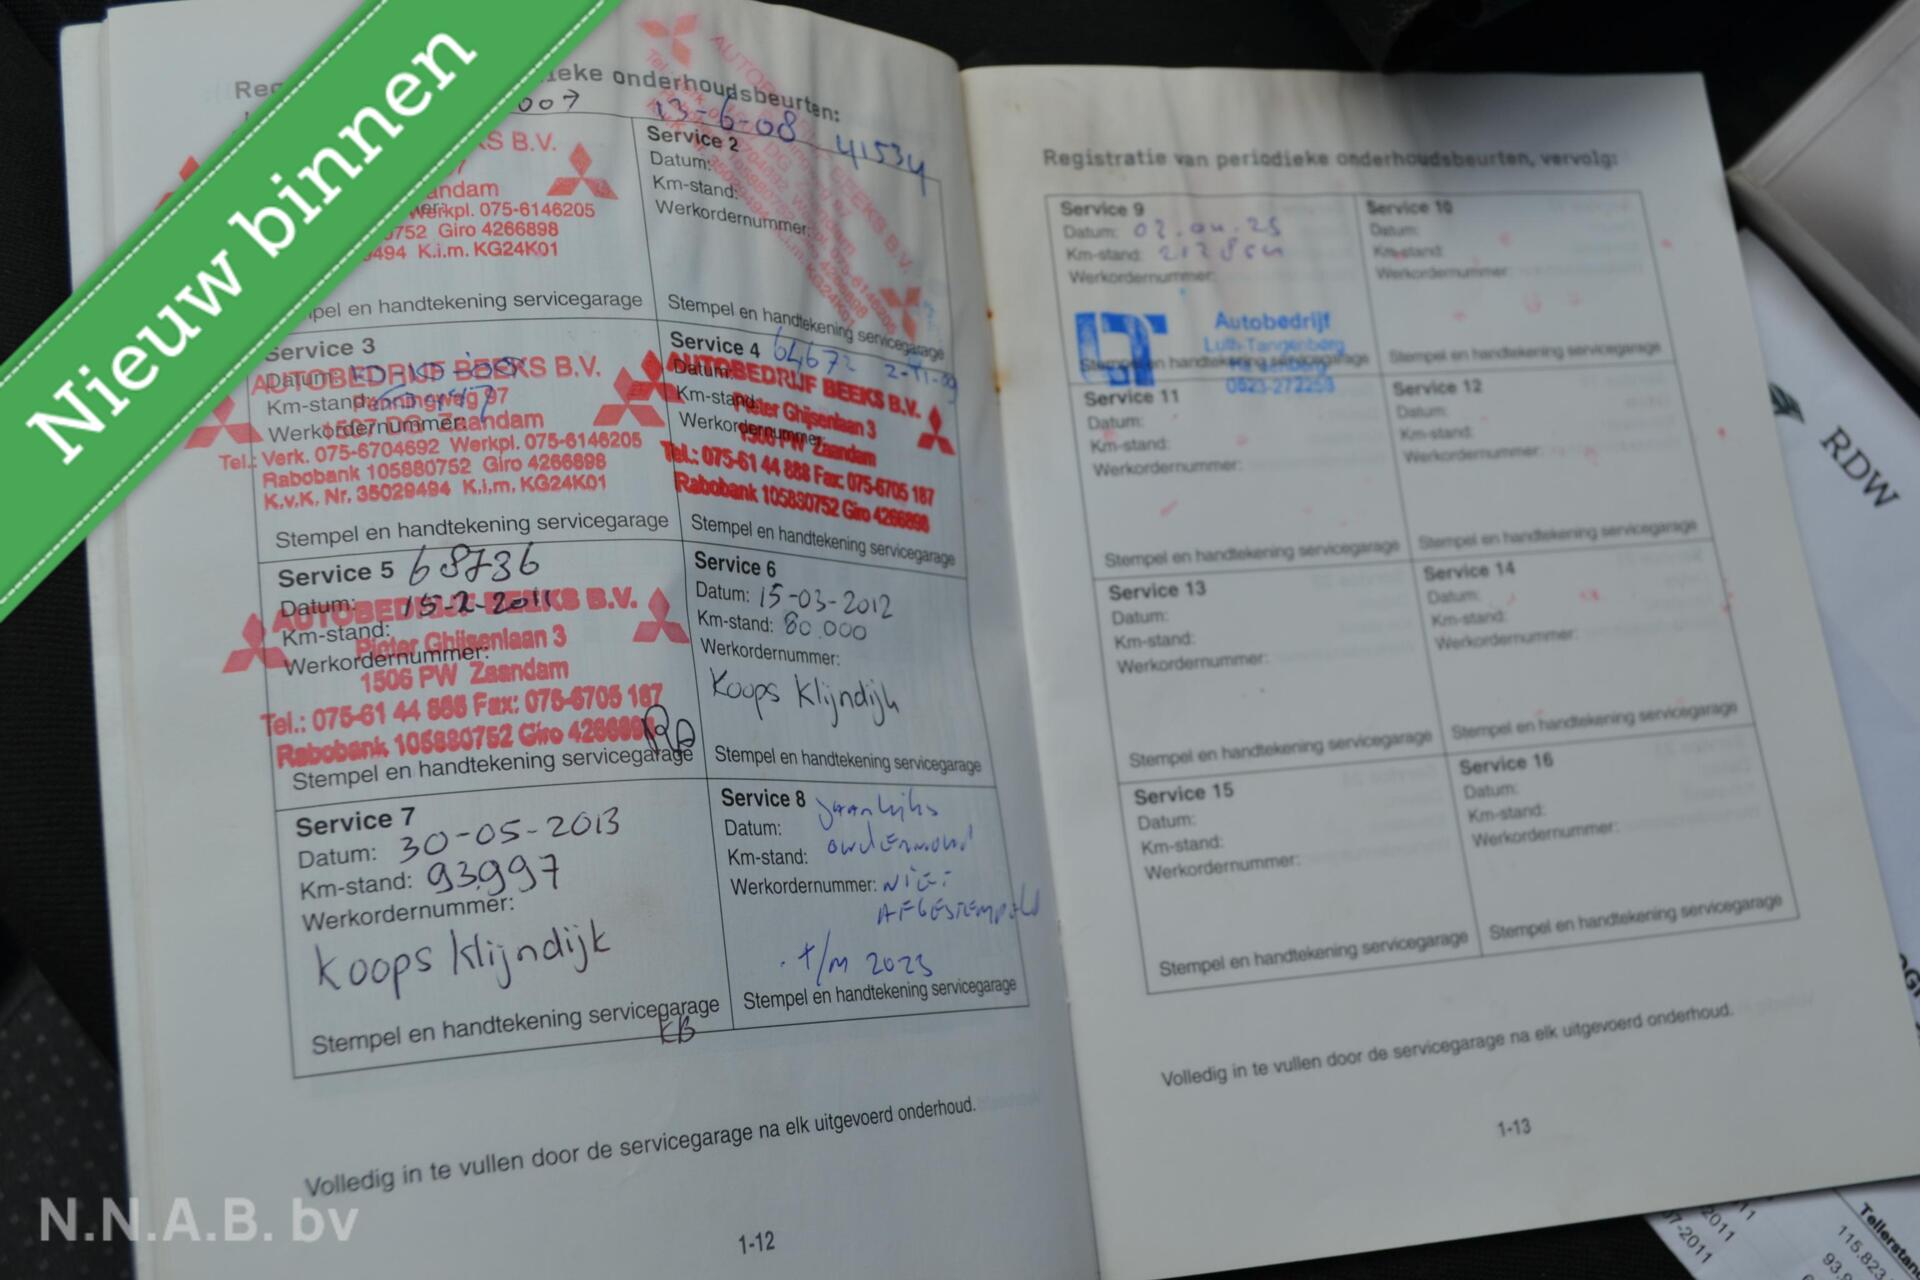 Nieuw binnen
onderhoudsbeurten:
007
KS B.V.
andam
Werkpl. 075-6146205
0752 Giro 4266898
9494 K.i.m. KG24K01
pel en handtekening servicegarage
13-6-08 41534
Service 2
Datum:
Km-stand:
Werkordernummer:
Stempel en handtekening servicegarage
Service 3
Datum:
Km-stand:
Werkordernummer:
AUTOBEDRIJF BEEKS B.V.
97
Zaandam
Tel.: Verk. 075-6704692 Werkpl. 075-6146205
Rabobank 105880752 Giro 4266898
K.v.K. Nr. 35029494 K.i.m. KG24K01
Stempel en handtekening servicegarage
Service 4 64672 2-11-09
Datum:
Km-stand:
Werkordernummer:
AUTOBEDRIJF BEEKS B.V.
Pieter Ghijsenlaan 3
1506 PW Zaandam
Tel.: 075-61 44 888 Fax: 075-6705 187
Rabobank 105880752 Giro 4266898
Stempel en handtekening servicegarage
Service 5 68736
Datum: 15-2-2011
Km-stand:
Werkordernummer:
AUTOBEDRIJF BEEKS B.V.
Pieter Ghijsenlaan 3
1506 PW Zaandam
Tel.: 075-61 44 888 Fax: 075-6705 187
Rabobank 105880752 Giro 4266898
Stempel en handtekening servicegarage
Service 6
Datum: 15-03-2012
Km-stand: 80.000
Werkordernummer:
Koops Klijndijk
Stempel en handtekening servicegarage
Service 7
Datum: 30-05-2013
Km-stand: 93.997
Werkordernummer:
Koops Klijndijk
Stempel en handtekening servicegarage
KB
Service 8 Jaarlijks
Datum: onderhoud
Km-stand:
Werkordernummer: NIET
AFGESTEMPELD
t/m 2023
Stempel en handtekening servicegarage
Volledig in te vullen door de servicegarage na elk uitgevoerd onderhoud.
1-12
Registratie van periodieke onderhoudsbeurten, vervolg:
Service 9
Datum: 02.04.25
Km-stand:
Werkordernummer:
Autobedrijf
Luth-Tangenberg
0523-272258
Stempel en handtekening servicegarage
Service 10
Datum:
Km-stand:
Werkordernummer:
Stempel en handtekening servicegarage
Service 11
Datum:
Km-stand:
Werkordernummer:
Stempel en handtekening servicegarage
Service 12
Datum:
Km-stand:
Werkordernummer:
Stempel en handtekening servicegarage
Service 13
Datum:
Km-stand:
Werkordernummer:
Stempel en handtekening servicegarage
Service 14
Datum:
Km-stand:
Werkordernummer:
Stempel en handtekening servicegarage
Service 15
Datum:
Km-stand:
Werkordernummer:
Stempel en handtekening servicegarage
Service 16
Datum:
Km-stand:
Werkordernummer:
Stempel en handtekening servicegarage
Volledig in te vullen door de servicegarage na elk uitgevoerd onderhoud.
1-13
RDW
Tellerstan
115.823
2011
07-2011
N.N.A.B. bv